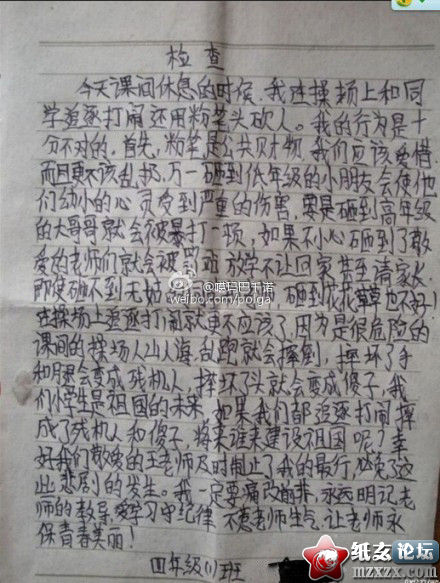 检查
今天课间休息的时候,我在操场上和同
学追逐打闹还用粉笔头砍人。我的行为是十
分不对的,首先,粉笔是公共财物,我们应该爱惜
而且更不该乱扔,万一砸到低年级的小朋友会使他
们幼小的心灵受到严重的伤害,要是砸到高年级
的大哥哥就会被暴打一顿,如果不小心砸到了敬
爱的老师们就会被罚 放学不让回家甚至请家长
即使砸不到无 砸到花花草草也不
在操场上追逐打闹就更不应该了,因为是很危险的
课间的操场人山人海,乱跑就会摔倒,摔坏了手
和腿会变成残机人,摔坏了头就会变成傻子,我
们学生是祖国的未来,如果我们都追逐打闹摔
成了残机人和傻子,将来谁来建设祖国呢?幸
好我们敬爱的王老师及时制止了我的最行,必免了这
些悲剧的发生。我一定要痛改前非,永远明记老
师的教导,爱学习守纪律 不惹老师生气,让老师永
保青春美丽!
四年级(1)班
@喷玛巴千诺
weibo.com/polga
纸玄论坛
mzxzx.com